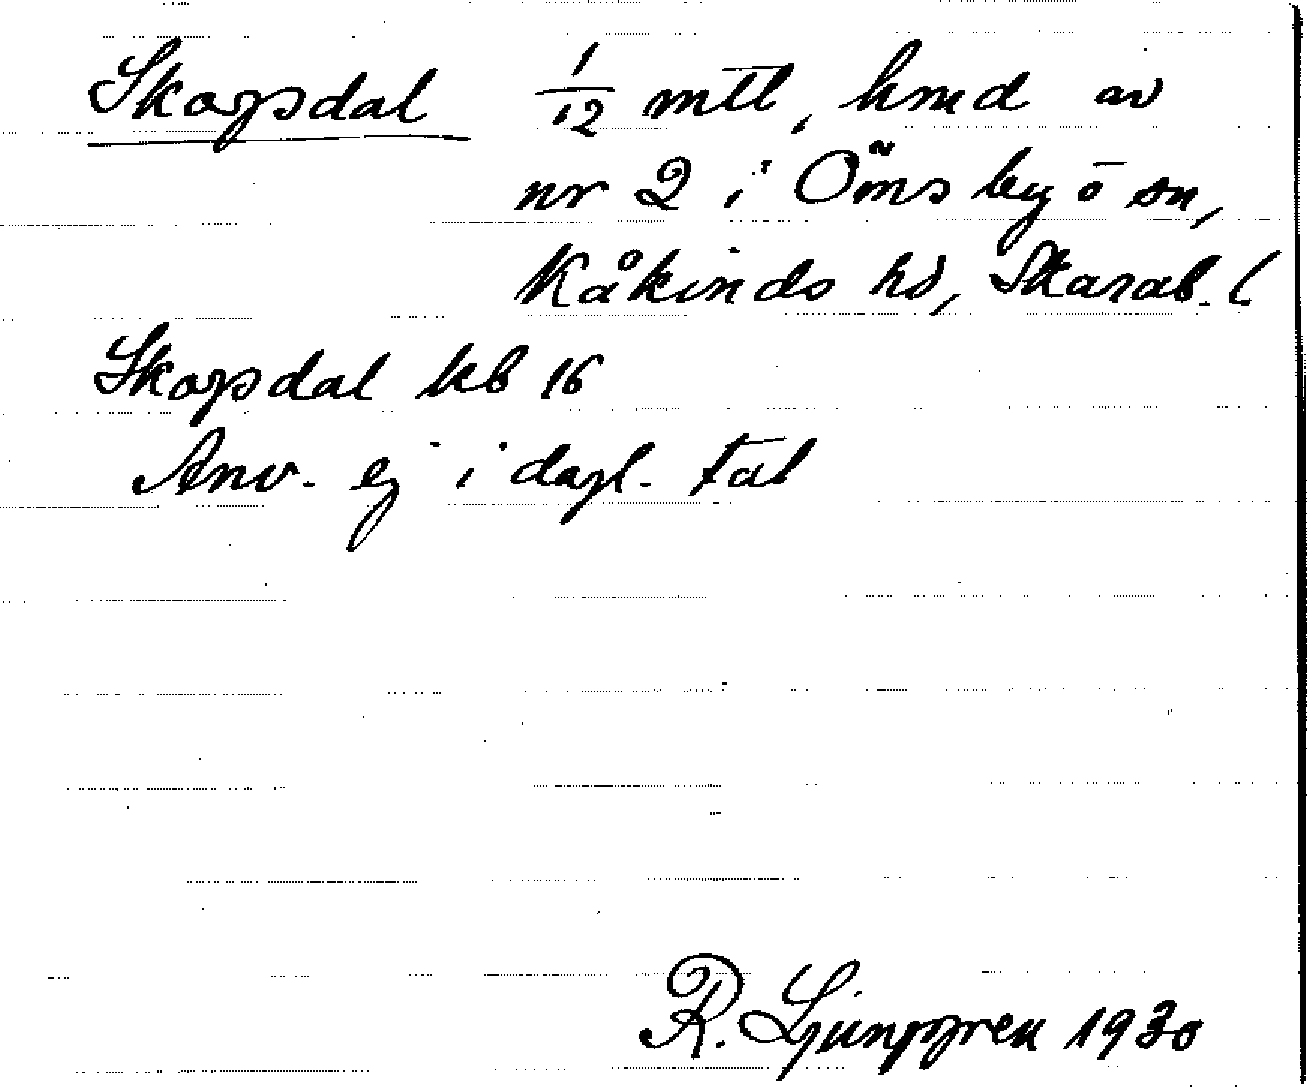 Skogsdal 1/12 mtl, hmd av
nr 2 i Öms by o sn,
Kåkinds hd, Skarab. l
Skogsdal kb 16
Anv. ej i dagl. tal
R. Ljunggren 1930